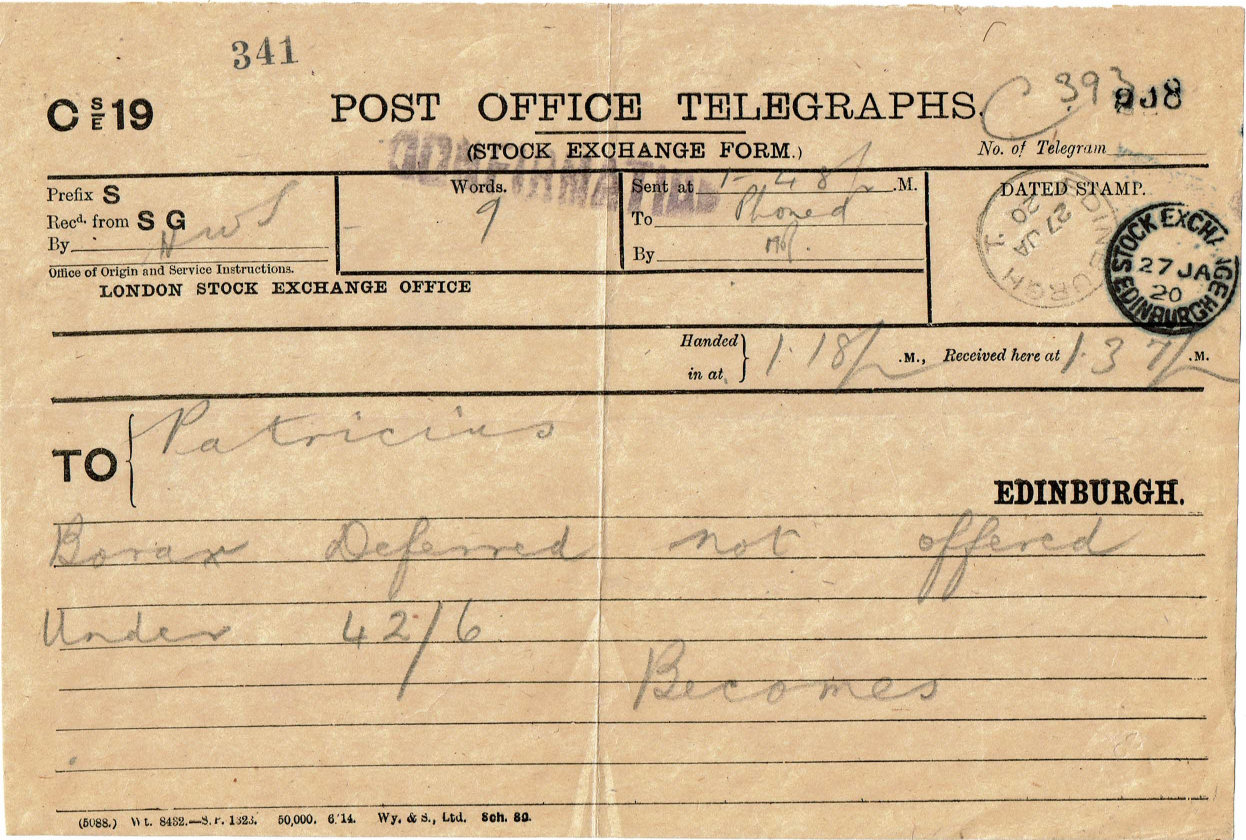 341
C S/E 19
POST OFFICE TELEGRAPHS.
C 393
918
(STOCK EXCHANGE FORM.)
No. of Telegram
CONFIRMATION
Prefix S
Recd. from S G
By
Words.
9
Sent at 1-48 P .M.
To Phoned
By
DATED STAMP.
EDINBURGH T.
27 JA
20
STOCK EXCHANGE
27 JA
20
EDINBURGH
Office of Origin and Service Instructions.
LONDON STOCK EXCHANGE OFFICE
Handed in at 1.18 P .M., Received here at 1.37 P .M.
TO Patricius
EDINBURGH.
Borax Deferred not offered
Under 42/6
Becomes
(5088.) Wt. 8432.—S.P. 1323. 50,000. 6/14. Wy. & S., Ltd. Sch. 80.